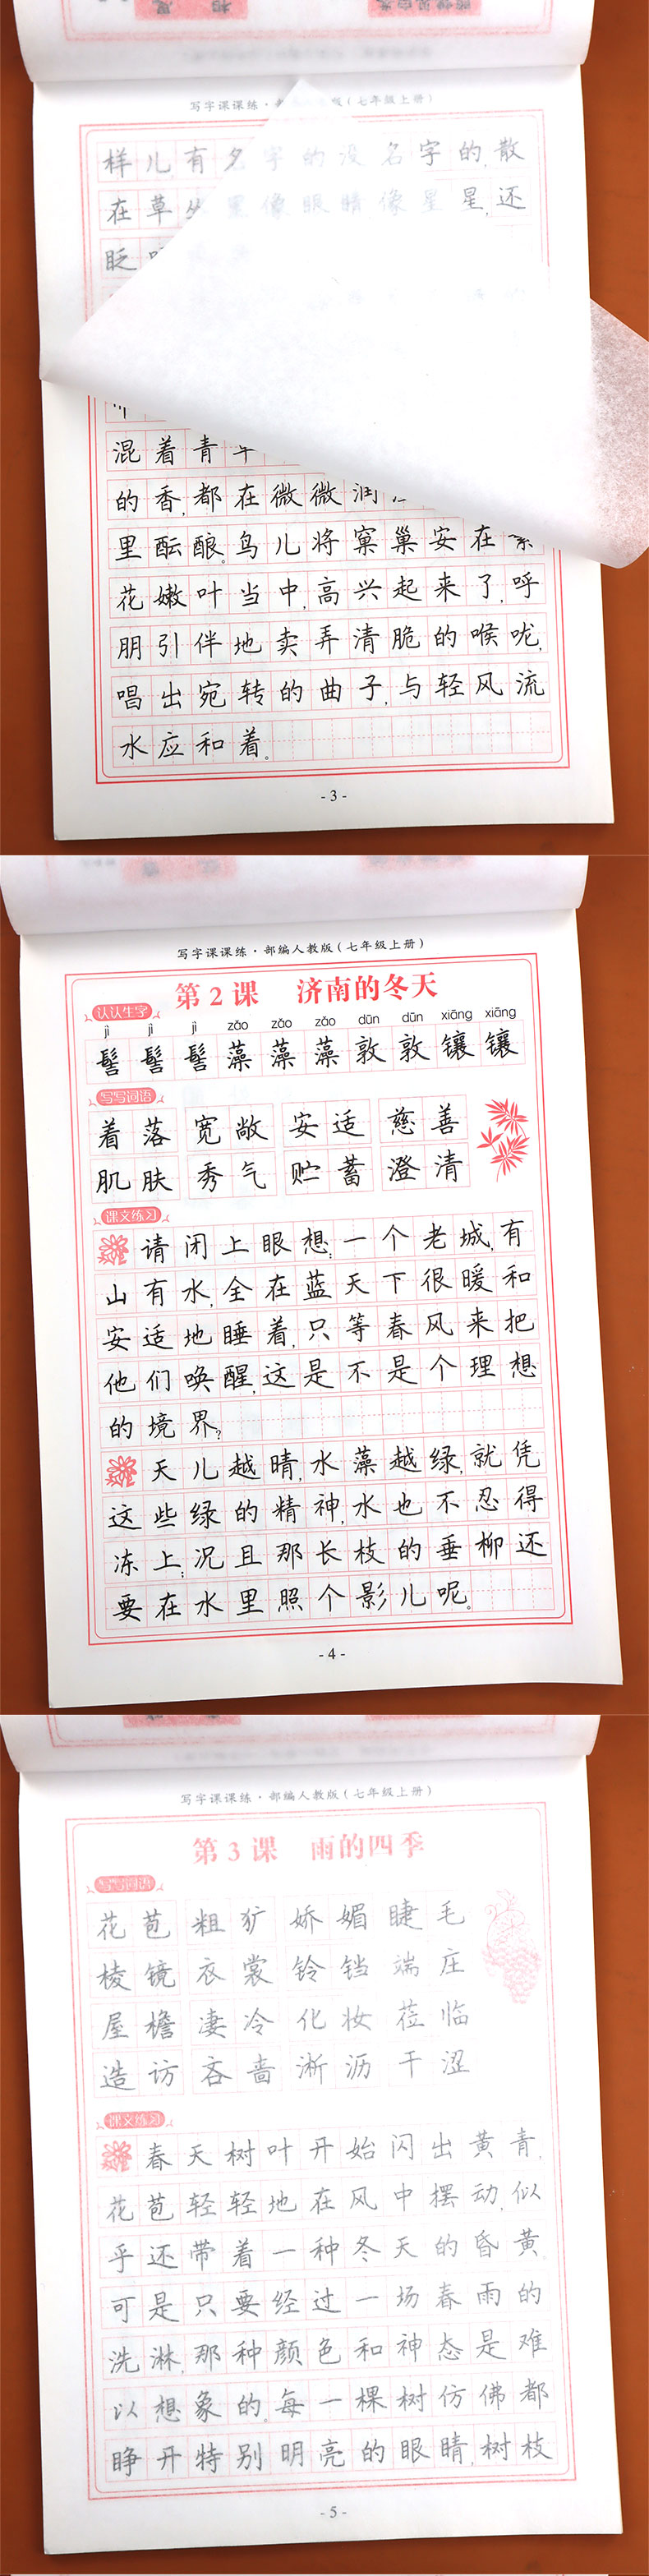 写字课课练·部 版(七年级上册)
样儿,有名字的,没名字的,散
在草丛里像眼睛,像星星,还
眨
混着青草
的香,都在微微润
里酝酿。鸟儿将窠巢安在繁
花嫩叶当中,高兴起来了,呼
朋引伴地卖弄清脆的喉咙,
唱出宛转的曲子,与轻风流
水应和着。
- 3 -
写字课课练·部编人教版(七年级上册)
第2课 济南的冬天
认认生字
jì jì jì zǎo zǎo zǎo dūn dūn xiāng xiāng
髻 髻 髻 藻 藻 藻 敦 敦 镶 镶
写写词语
着落 宽敞 安适 慈善
肌肤 秀气 贮蓄 澄清
课文练习
请闭上眼想:一个老城,有
山有水,全在蓝天下很暖和
安适地睡着,只等春风来把
他们唤醒,这是不是个理想
的境界?
天儿越晴,水藻越绿,就凭
这些绿的精神,水也不忍得
冻上;况且那长枝的垂柳还
要在水里照个影儿呢。
- 4 -
写字课课练·部编人教版(七年级上册)
第3课 雨的四季
写写词语
花苞 粗犷 娇媚 睫毛
棱镜 衣裳 铃铛 端庄
屋檐 凄冷 化妆 莅临
造访 吝啬 淅沥 干涩
课文练习
春天,树叶开始闪出黄青,
花苞轻轻地在风中摆动,似
乎还带着一种冬天的昏黄。
可是只要经过一场春雨的
洗淋,那种颜色和神态是难
以想象的。每一棵树仿佛都
睁开特别明亮的眼睛,树枝
- 5 -